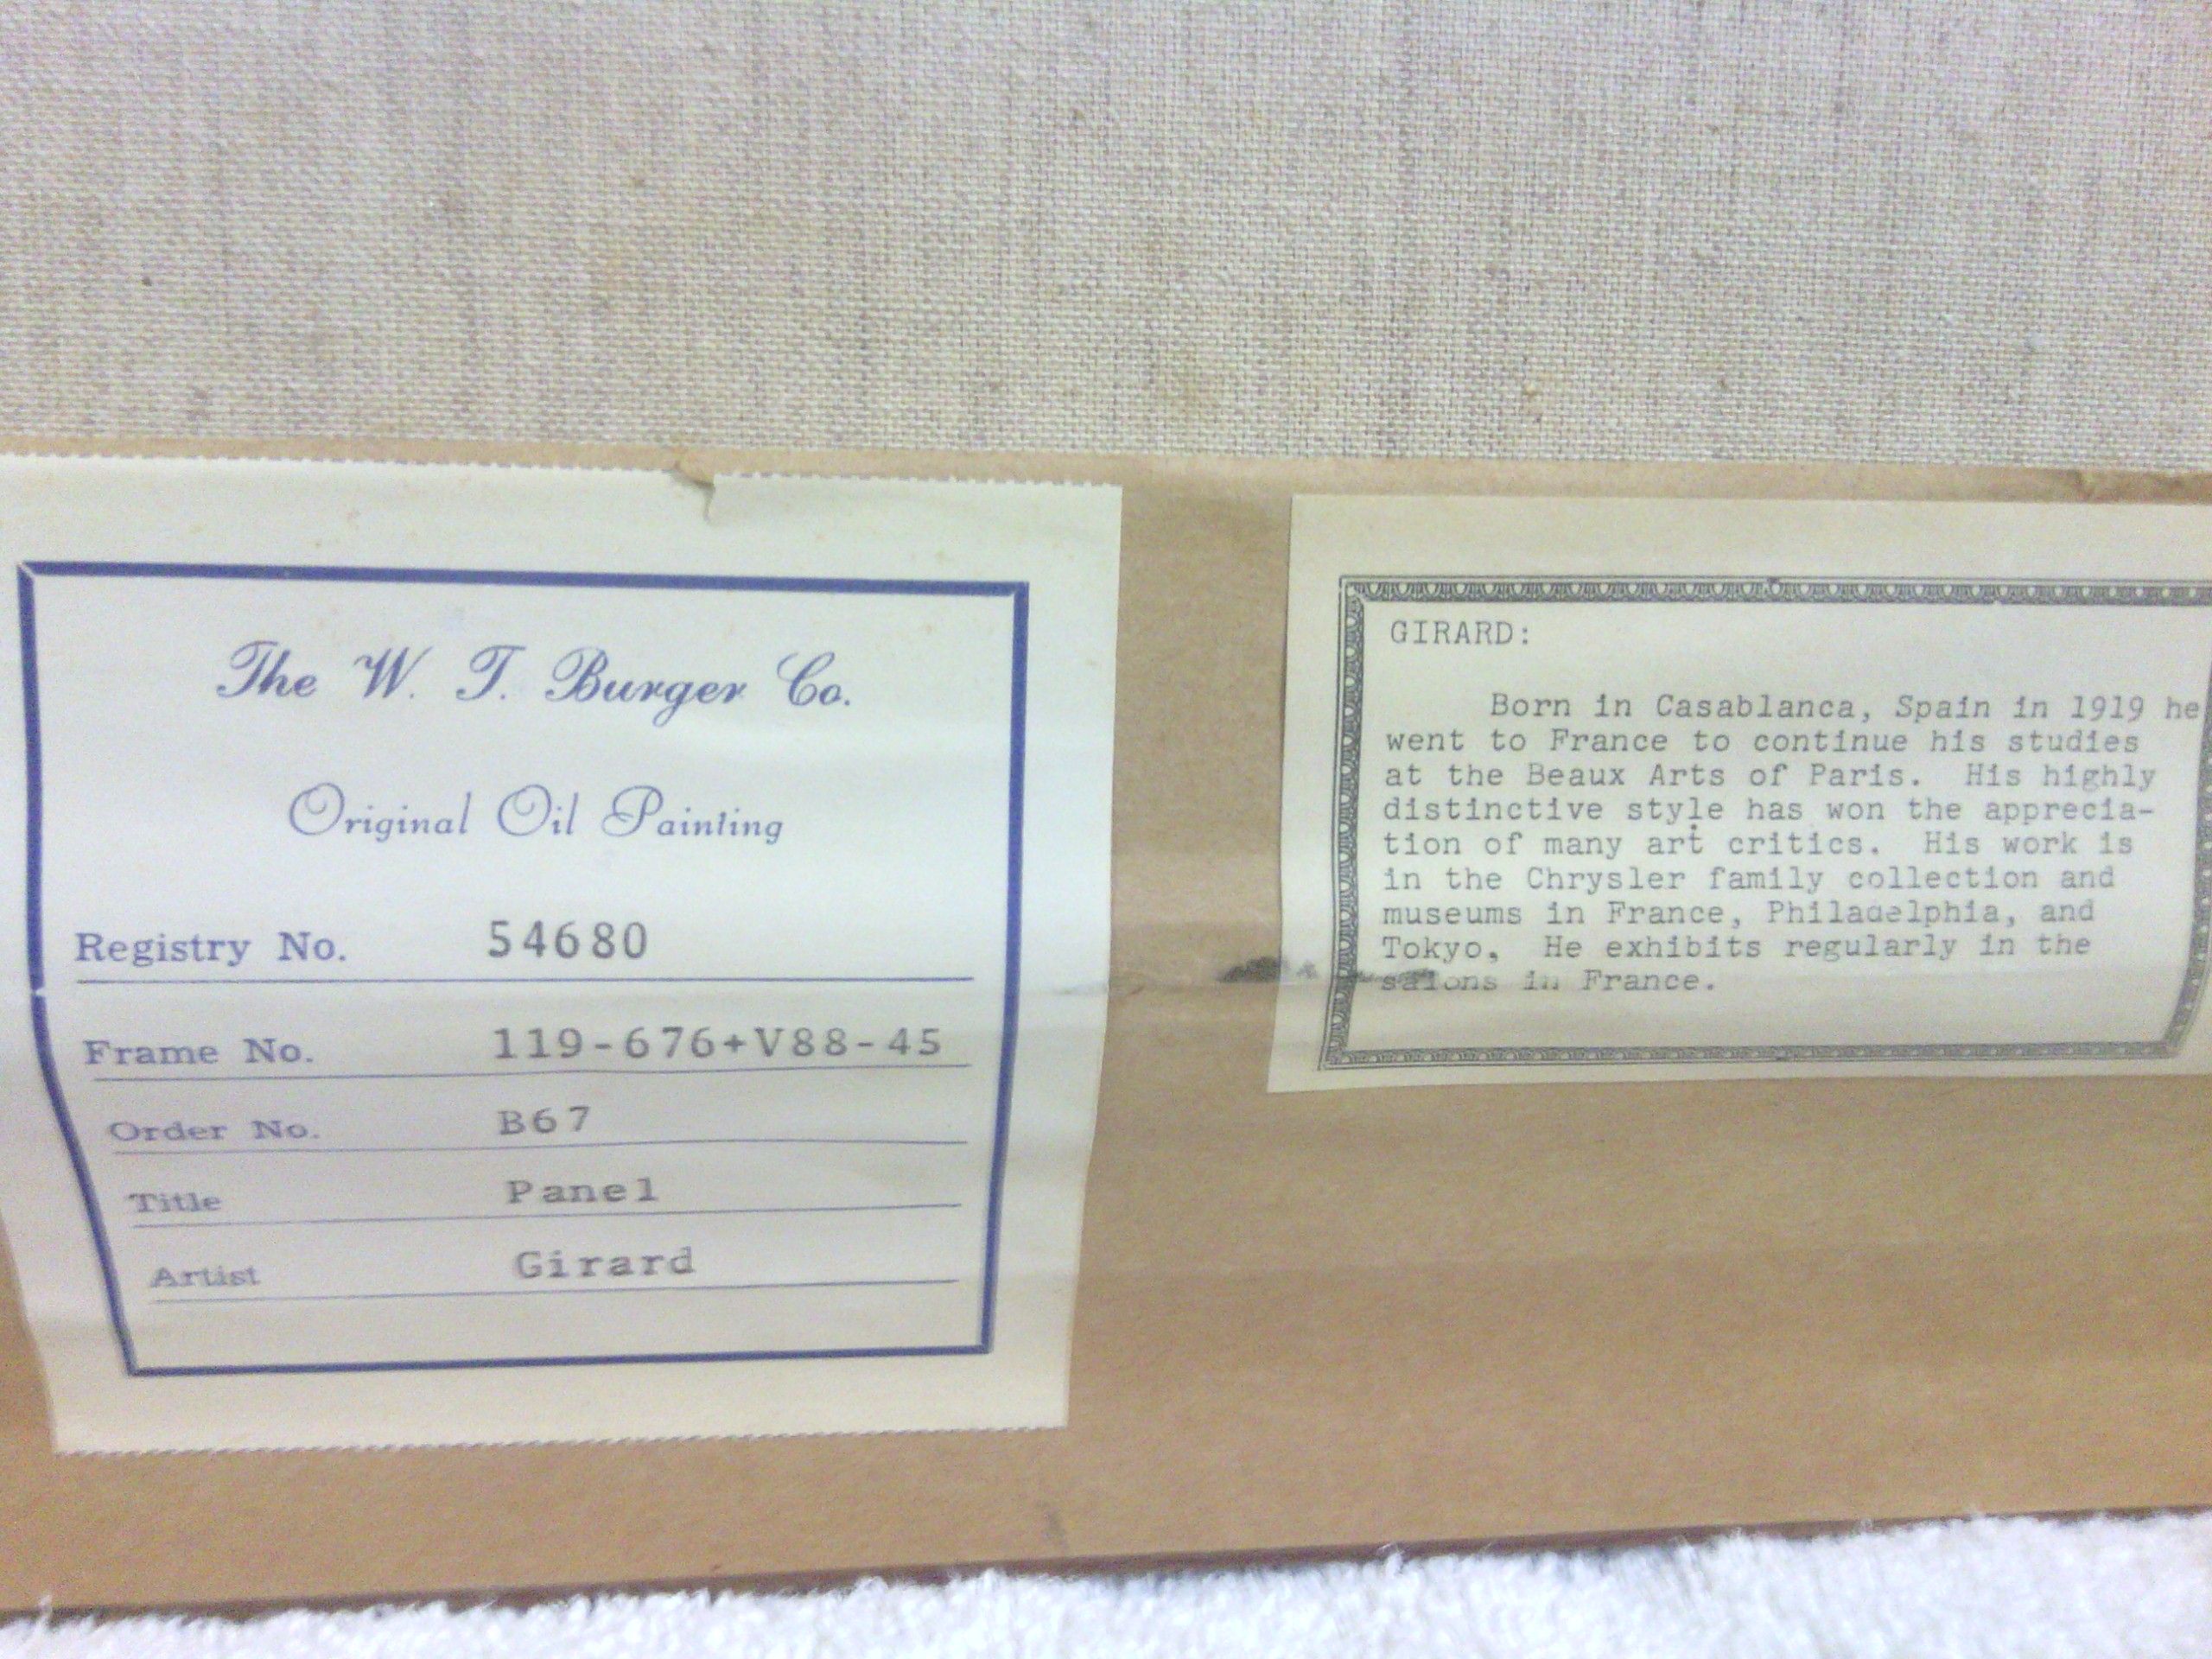 The W. T. Burger Co.
Original Oil Painting
Registry No. 54680
Frame No. 119-676+V88-45
Order No. B67
Title Panel
Artist Girard
GIRARD:
Born in Casablanca, Spain in 1919 he
went to France to continue his studies
at the Beaux Arts of Paris. His highly
distinctive style has won the apprecia-
tion of many art critics. His work is
in the Chrysler family collection and
museums in France, Philadelphia, and
Tokyo, He exhibits regularly in the
salons in France.